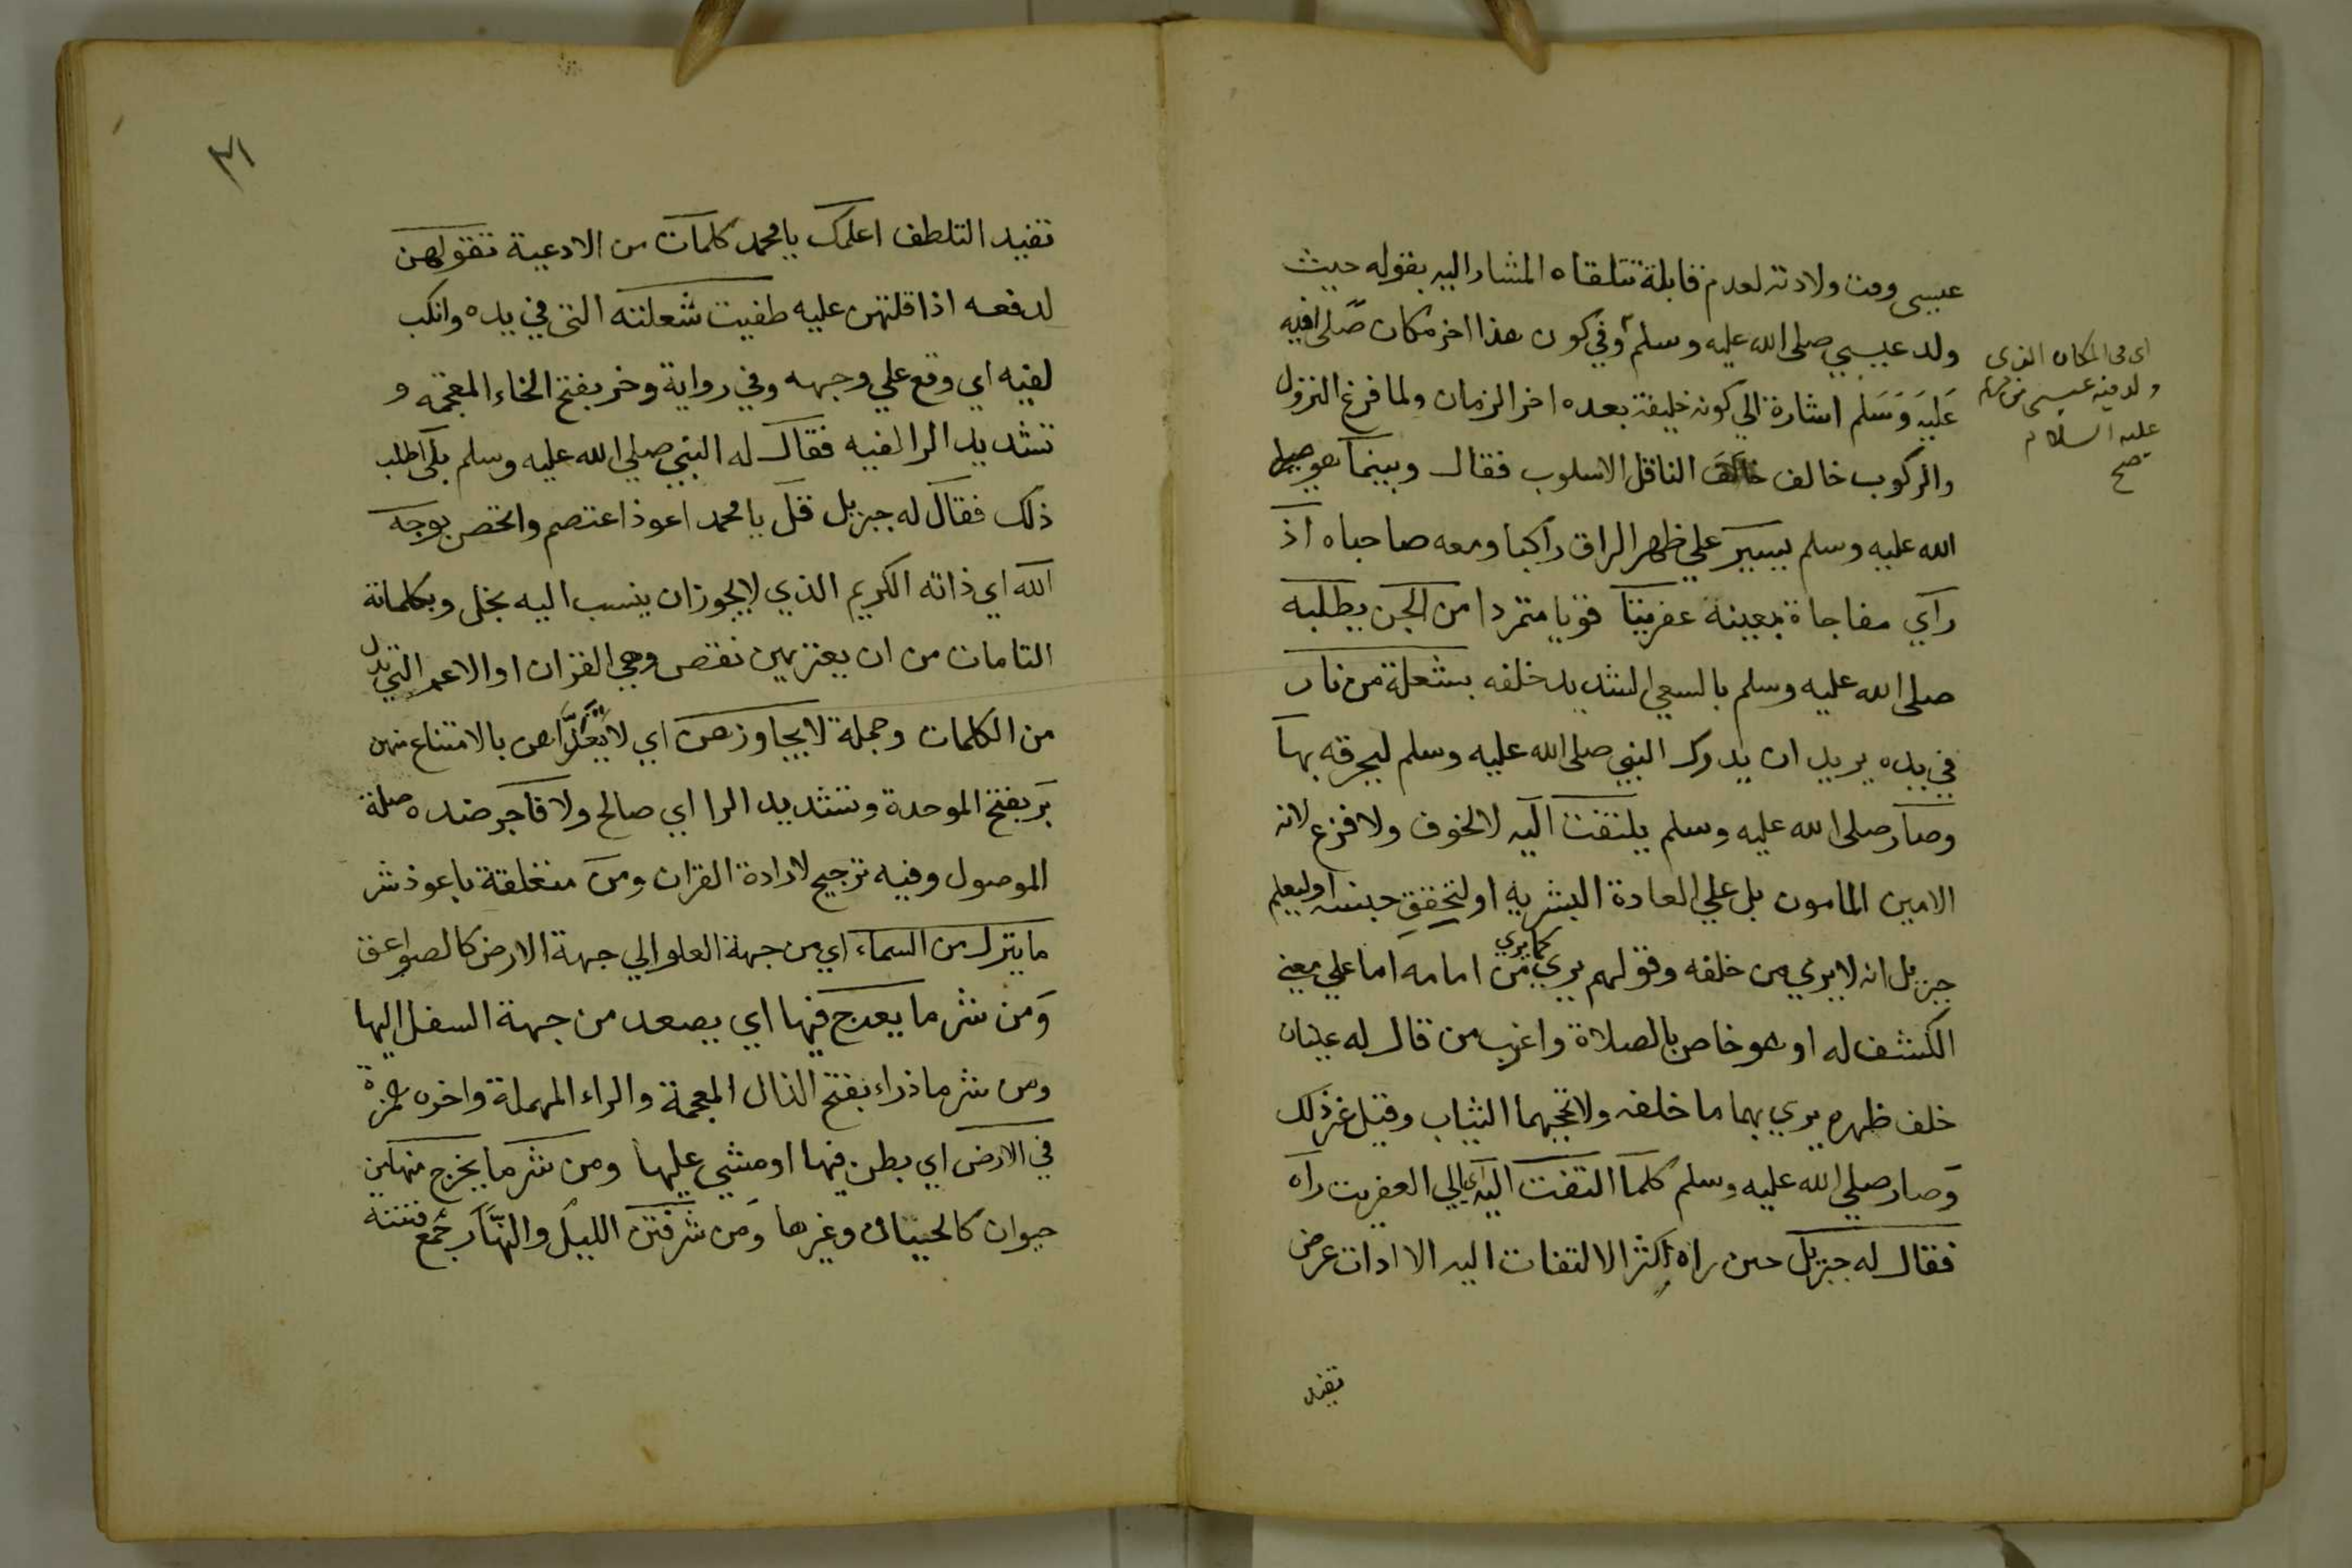 عيسى وقت ولادته لعدم قابلة تتلقاه المشار اليه بقوله حيث
ولد عيسي صلى الله عليه وسلم وفي كون هذا اخر مكان صلى فيه
عليه وسلم اشارة الي كونه خليفة بعده اخر الزمان ولما فرغ النزول
والركوب خالف الناقل الاسلوب فقال وبينما هو صلى
الله عليه وسلم يسير علي ظهر البراق راكبا ومعه صاحباه اذ
راي مفاجاة بعينه عفريتا قويا متمردا من الجن يطلبه
صلى الله عليه وسلم بالسعي الشديد خلفه بشعلة من نار
في يده يريد ان يدرك النبي صلى الله عليه وسلم ليحرقه بها
وصار صلى الله عليه وسلم يلتفت اليه لا لخوف ولا فزع لانه
الامين المامون بل علي العادة البشرية او لتحقق جنسه او ليعلم
جبريل انه لا يري من خلفه وقولهم يري كما يري من امامه اما علي معني
الكشف له او هو خاص بالصلاة واغرب من قال له عينان
خلف ظهره يري بهما ما خلفه ولا تحجبهما الثياب وقيل غير ذلك
وصار صلي الله عليه وسلم كلما التفت اليه اي الي العفريت رآه
فقال له جبريل حين راه اكثر الالتفات اليه الا اداة عرض
تفيد
اي في المكان الذي
ولد فيه عيسى بن مريم
عليه السلام
صح
٣١
تفيد التلطف اعلمك يا محمد كلمات من الادعية تقولهن
لدفعه اذا قلتهن عليه طفيت شعلته التي في يده وانكب
لفيه اي وقع علي وجهه وفي رواية وخر بفتح الخاء المعجمة و
تشديد الرا لفيه فقال له النبي صلي الله عليه وسلم بلى اطلب
ذلك فقال له جبريل قل يا محمد اعوذ اعتصم واتحصن بوجه
الله اي ذاته الكريم الذي لا يجوز ان ينسب اليه بخل وبكلماته
التامات من ان يعتريهن نقص وهي القران او الاعم التي بدل
من الكلمات وجملة لا يجاوزهن اي لا يتعداهن بالامتناع منهن
بر بفتح الموحدة وتشديد الرا اي صالح ولا فاجر ضده صلة
الموصول وفيه ترجيح لارادة القران ومن متعلقة باعوذ شر
ما ينزل من السماء اي من جهة العلو الي جهة الارض كالصواعق
ومن شر ما يعرج فيها اي يصعد من جهة السفل اليها
ومن شر ما ذراء بفتح الذال المعجمة والراء المهملة واخره همزة
في الارض اي بطن فيها او مشي عليها ومن شر ما يخرج منها من
حيوان كالحيات وغيرها ومن شر فتن الليل والنهار جمع فتنة